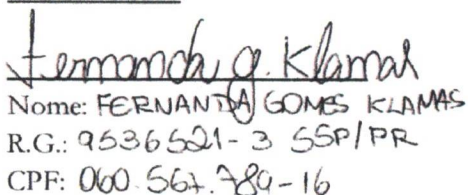 Fernanda G. Klamas
Nome: FERNANDA GOMES KLAMAS
R.G.: 9536521-3 SSP/PR
CPF: 060.567.789-16